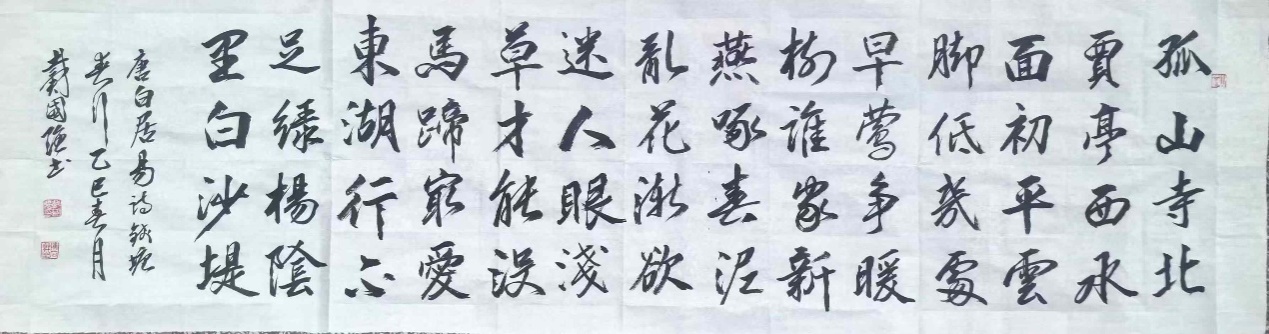 孤山寺北
賈亭西水
面初平雲
脚低幾處
早莺争暖
树誰家新
燕啄春泥
亂花渐欲
迷人眼淺
草才能没
馬蹄最愛
東湖行不
足绿楊陰
里白沙堤
唐白居易诗钱塘
春行乙巳春月
戴國强书